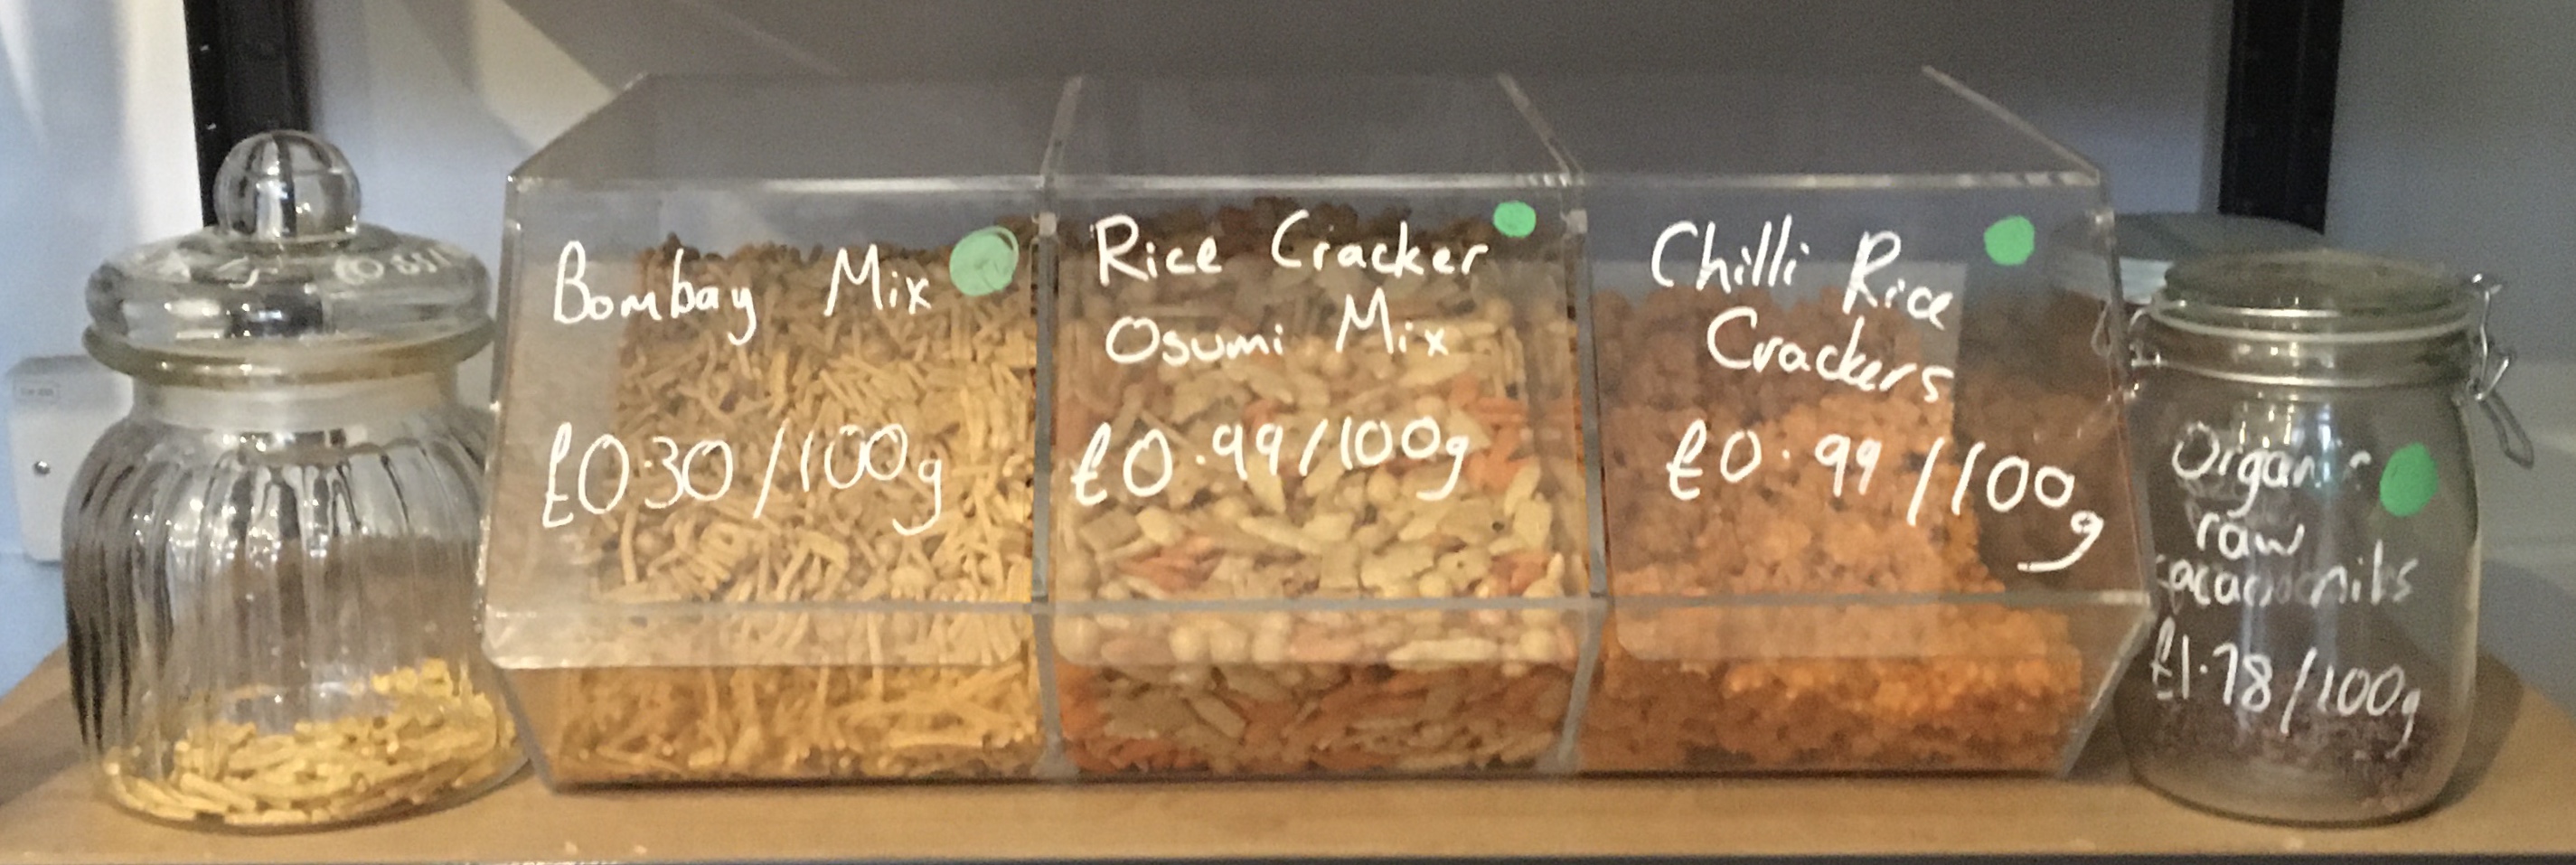 Bombay Mix
£0.30/100g
Rice Cracker
Osumi Mix
£0.99/100g
Chilli Rice
Crackers
£0.99/100g
Organic
raw
cacao nibs
£1.78/100g